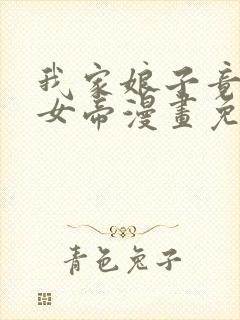 我家娘子竟
女帝漫畫免
青色兔子